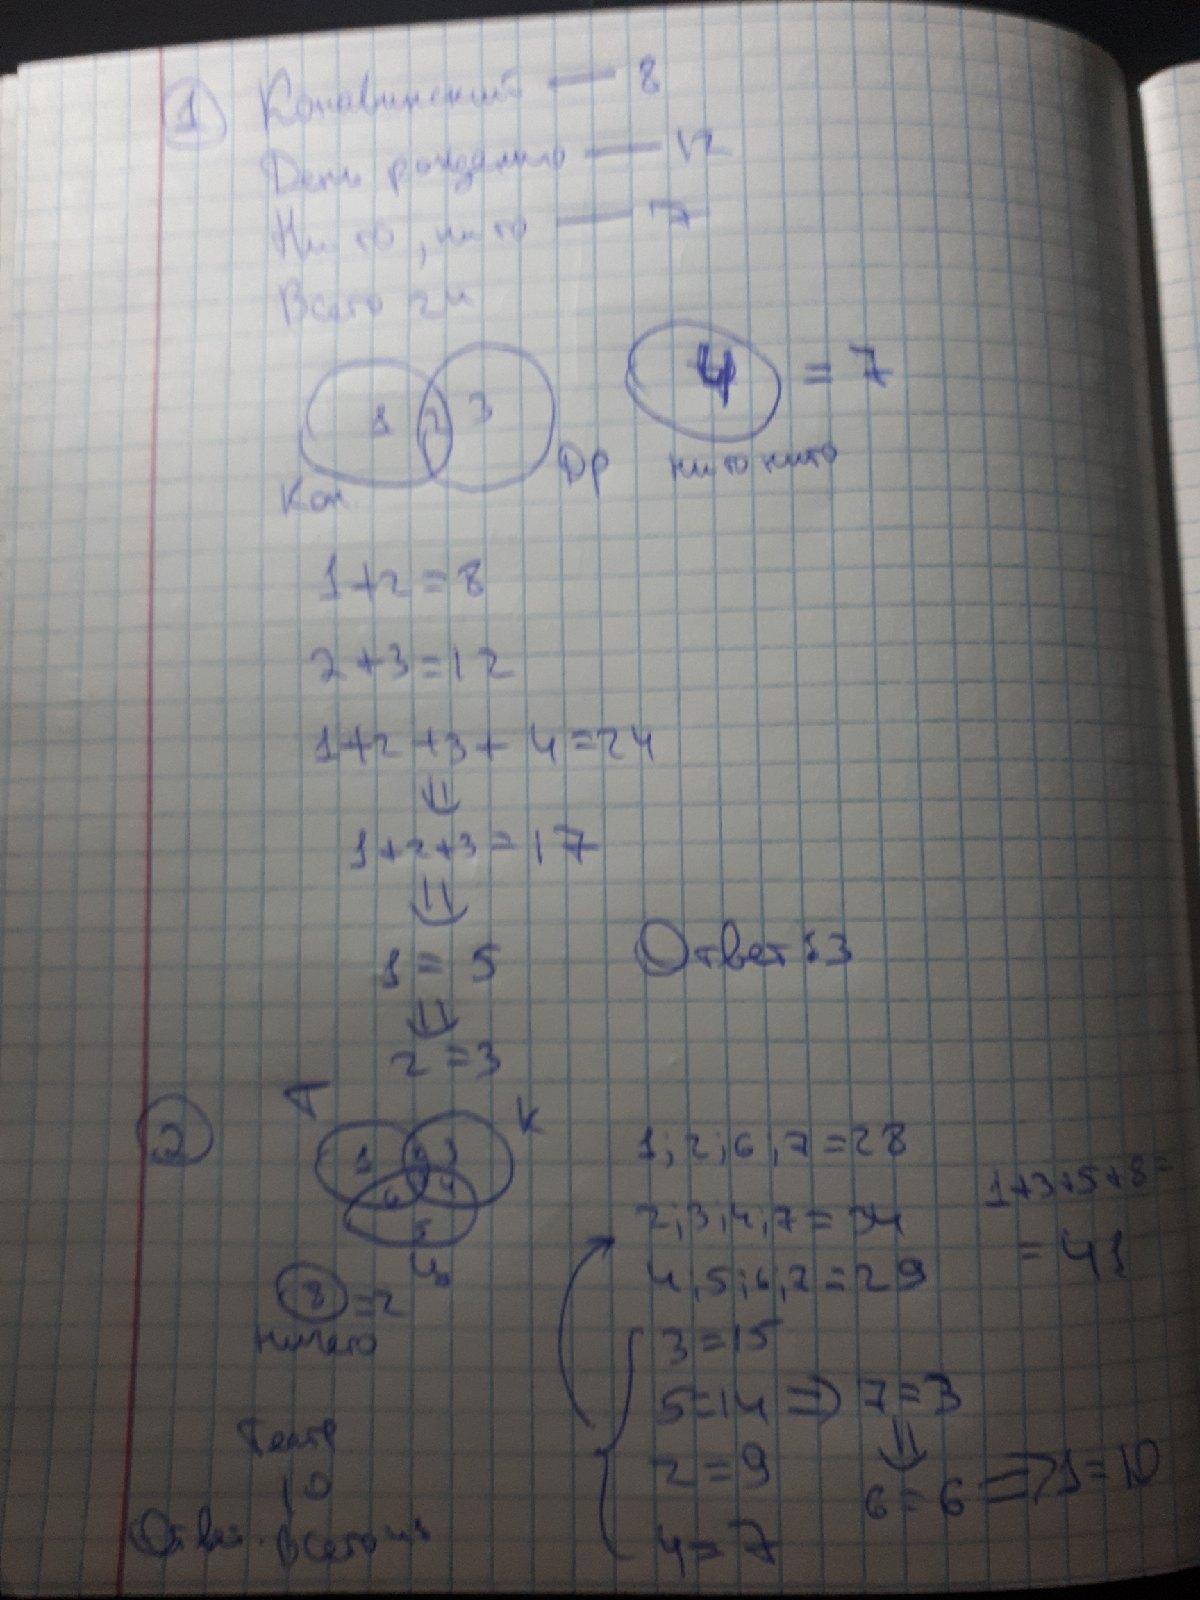 1 Копавинский — 8
День рождению — 12
Ни то, ни то — 7
Всего 24
1 2 3 4 = 7
Кон. Др ни то ни то
1+2=8
2+3=12
1+2+3+4=24
⇓
1+2+3=17
⇓
1=5 Ответ: 3
⇓
2=3
2 Т К
1 2 3 1; 2; 6, 7 = 28
6 4 2; 3; 4; 7 = 34 1+3+5+8=
5 4, 5; 6, 7 = 29 = 41
8 = 2
ничего 3=15
5=14 ⇒ 7=3
Театр 2=9 ⇓
10 6=6 ⇒ 1=10
Ответ. Всего 41 4=7